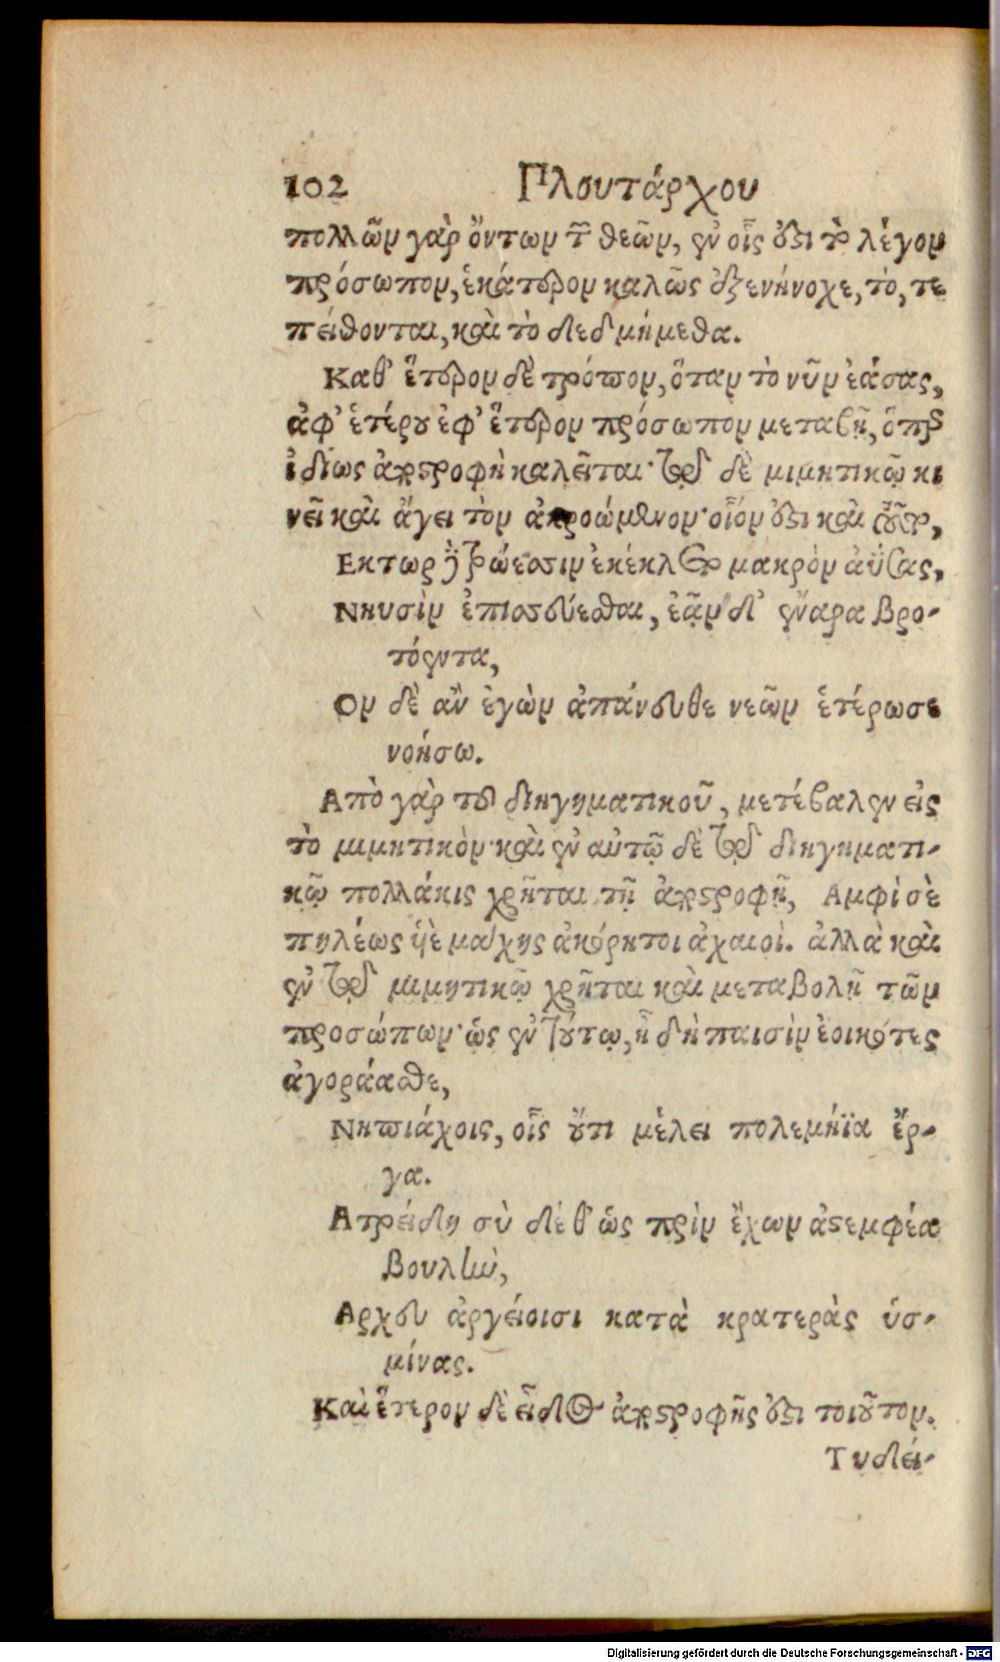 102 Πλουτάρχου
πολλῶν γὰρ ὄντων τ͂ θεῶν, ἐν οἷς ὅξι τὸ λέγον
πρόσωπον, ἑκάτερον καλῶς ἐξενήνοχε, τὸ, τε
πείθονται, καὶ τὸ δεδμήμεθα.
Καθ' ἕτερον δὲ τρόπον, ὅταν τὸ νῦν ἐάσας,
ἀφ' ἑτέρου ἐφ' ἕτερον πρόσωπον μεταβῇ, ὅπερ
ἰδίως ἀποστροφὴ καλεῖται· τῷ δὲ μιμητικῷ κι
νεῖ καὶ ἄγει τὸν ἀκροώμενον· οἷόν ἐστι καὶ τοῦτο,
Εκτωρ ἢ Τρώεσσιν ἐκέκλετο μακρὸν ἀΰσας,
Νηυσὶν ἐπισσεύεσθαι, ἐᾶν δ' ἔναρα βρο-
τόεντα,
Ον δὲ ἂν ἐγὼν ἀπάνευθε νεῶν ἑτέρωσε
νοήσω.
Απὸ γὰρ τοῦ διηγηματικοῦ, μετέβαλεν εἰς
τὸ μιμητικόν· καὶ ἐν αὐτῷ δὲ τῷ διηγηματι-
κῷ πολλάκις χρῆται τῇ ἀποστροφῇ, Αμφὶ σὲ
πηλέως ἱὲ μάχης ἀκόρητοι ἀχαιοὶ. ἀλλὰ καὶ
ἐν τῷ μιμητικῷ χρῆται καὶ μεταβολῇ τῶν
προσώπων· ὡς ἐν τούτῳ, ἦ δὴ παισὶν ἐοικότες
ἀγοράασθε,
Νηπιάχοις, οἷς οὔτι μέλει πολεμήϊα ἔρ-
γα.
Ατρείδη σὺ δέ θ' ὡς πρὶν ἔχων ἀστεμφέα
βουλὴν,
Αρχευ ἀργείοισι κατὰ κρατερὰς ὑσ-
μίνας.
Καὶ ἕτερον δὲ εἶδος ἀποστροφῆς ἐστι τοιοῦτον.
Τυδεί-
Digitalisierung gefördert durch die Deutsche Forschungsgemeinschaft - DFG